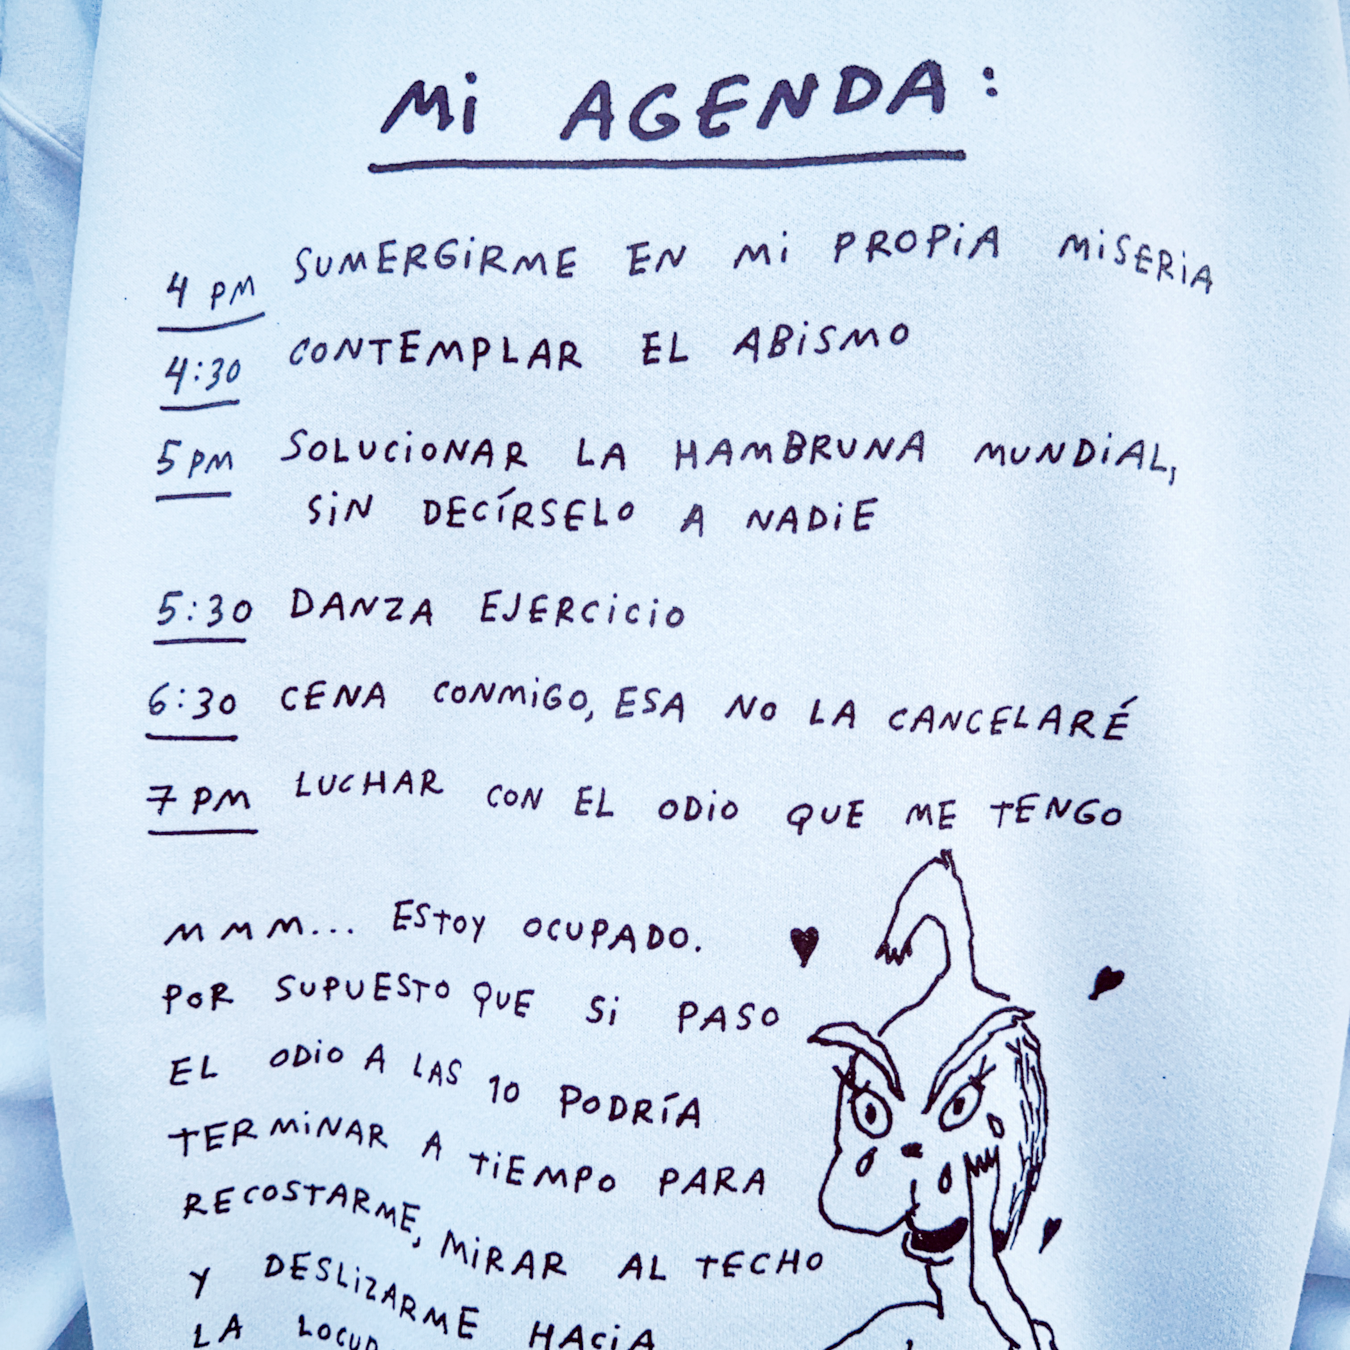 Mi AGENDA:
4 PM SUMERGIRME EN Mi PROPIA MISERIA
4:30 CONTEMPLAR EL ABISMO
5 PM SOLUCIONAR LA HAMBRUNA MUNDIAL,
SIN DECÍRSELO A NADIE
5:30 DANZA EJERCICIO
6:30 CENA CONMIGO, ESA NO LA CANCELARÉ
7 PM LUCHAR CON EL ODIO QUE ME TENGO
MMM... ESTOY OCUPADO.
POR SUPUESTO QUE SI PASO
EL ODIO A LAS 10 PODRÍA
TERMINAR A TIEMPO PARA
RECOSTARME, MIRAR AL TECHO
Y DESLIZARME HACIA
LA